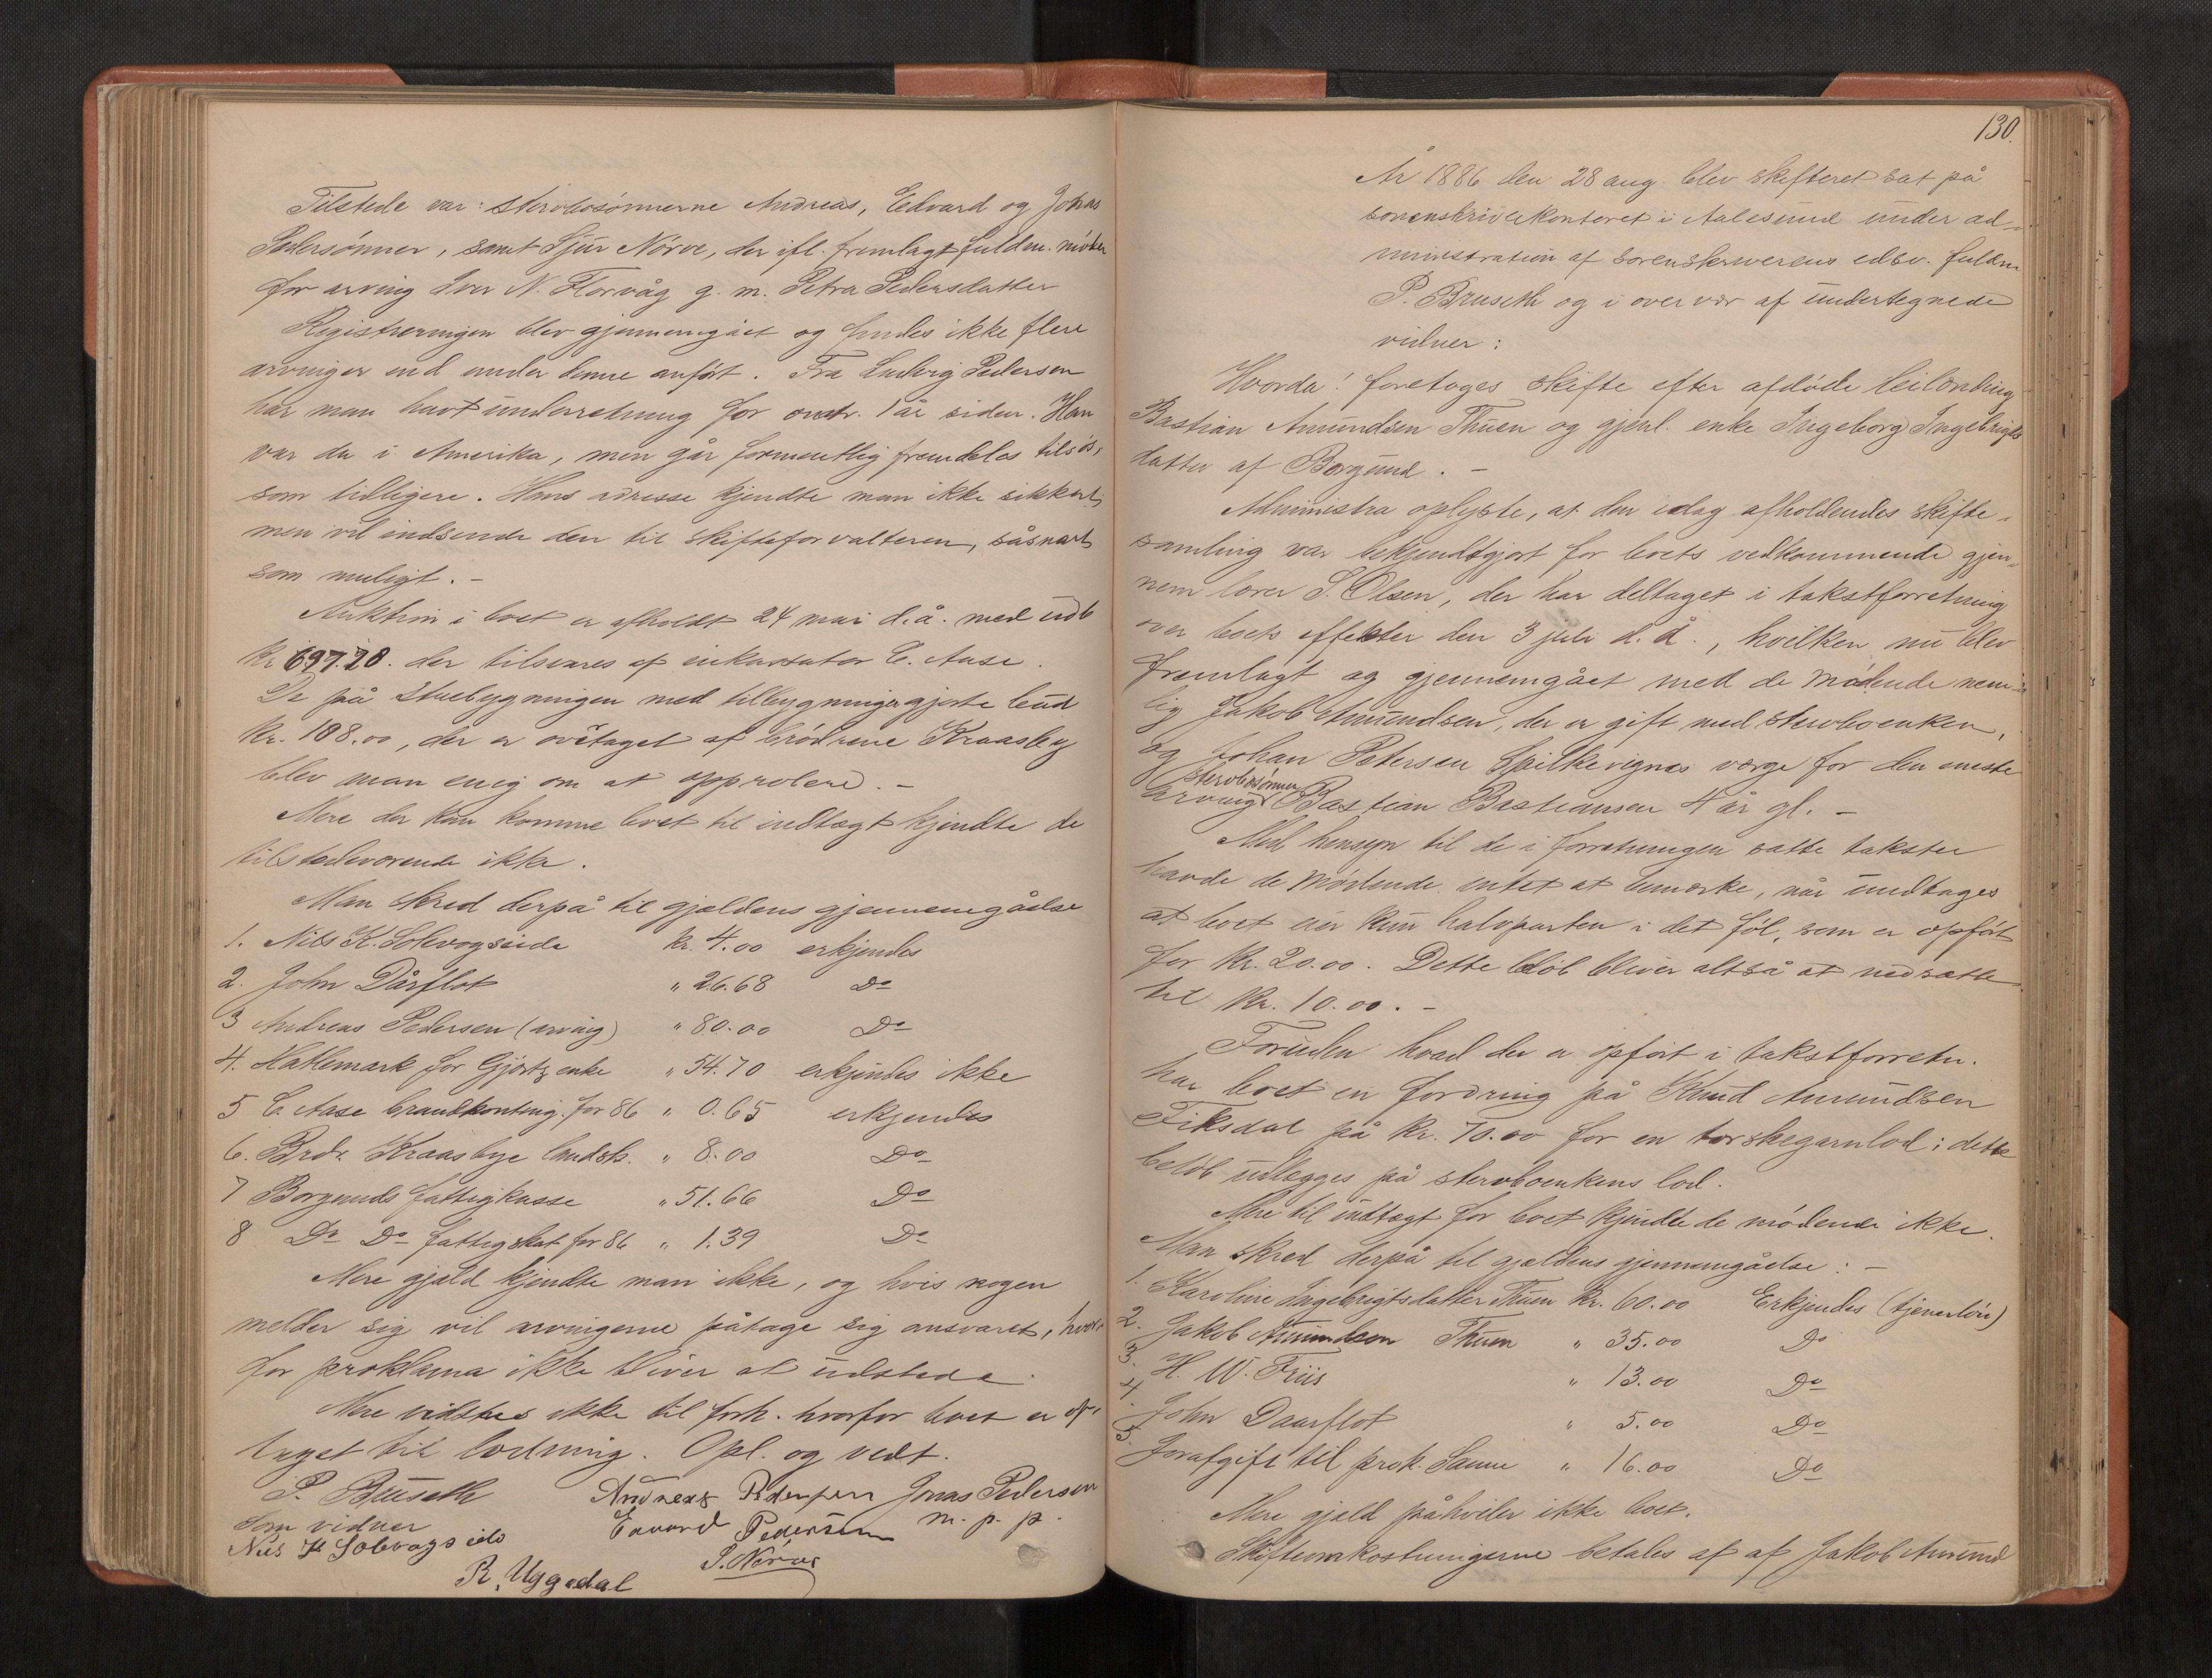 Tilstede var: stervbosønnerne Andreas, Edvard og Johas
Pedersønner, samt Sjur Nørve, der ifl. fremlagt fuldm. møder
for arving Iver N. Florvåg g. m. Petra Pedersdatter
Registreringen blev gjennemgået og findes ikke flere
arvinger end under denne anført. Fra Ludvig Pedersen
har man havt underretning for omtr. 1 år siden. Han
var da i Amerika, men går formentlig fremdeles tilsøs,
som tidligere. Hans adresse kjendte man ikke sikkert,
men vil indsende den til skifteforvalteren, såsnart
som muligt. -
Auktion i boet er afholdt 24 mai d. å. med udb
kr 697.20. der tilsvares af inkassator C. Aase.
De på Stuebygningen med tilbygninger gjorte bud
kr. 108.00, der er overtaget af brødrene Kraasby
blev man enig om at approbere. -
Mere der kan komme boet til indtægt kjendte de
tilstedeværende ikke.
Man skred derpå til gjældens gjennemgåelse
1. Nils K. Solevogseide kr. 4.00 erkjendes
2. John Dårflot " 26.68 Do
3 Andreas Pedersen (arving) " 80.00 Do
4. Hatlemark for Gjørtz enke " 54.70 erkjendes ikke
5 C. Aase brandkonting. for 86 " 0.65 erkjendes
6. Brdr. Kraasbye landsk. " 8.00 Do
7 Borgunds fattigkasse " 51.66 Do
8 Do Do fattigskat for 86 " 1.39 Do
Mere gjæld kjendte man ikke, og hvis nogen
melder sig vil arvingerne påtage sig ansvaret, hvor-
for proklama ikke bliver at udstede.
Mere vidstes ikke til forh. hvorfor boet er op-
taget til lodning. Opl. og vedt.
P. Bruseth Andreas Pedersen Jonas Pedersen
Som vidner Edvard Pedersen m. p. p.
Nils K Solevogseide S. Nørve
R. Uggedal
130.
År 1886 den 28 aug. blev skifteret sat på
sorenskriverkontoret i Aalesund under ad-
ministration af sorenskriverens edsv. fuldm
P. Bruseth og i overvær af undertegnede
vidner:
Hvorda! foretoges skifte efter afdøde leilænding
Bastian Amundsen Thuen og gjenl. enke Ingeborg Ingebrigts
datter af Borgund. -
Administra oplyste, at den idag afholdendes skifte-
samling var bekjendtgjort for boets vedkommende gjen-
nem lærer S. Olsen, der har deltaget i takstforretning
over boets effekter den 3 juli d. å., hvilken nu blev
fremlagt og gjennemgået med de mødende nem-
lig Jakob Amundsen, der er gift med stervboenken,
og Johan Petersen Spilkevignæs værge for den eneste
stervbosønnen
arving Bastian Bastiansen 4 år gl. -
Med hensyn til de i forretningen satte takster
havde de mødende intet at bemærke, når undtages
at boet eier kun halvparten i det føl, som er opført
for kr. 20.00. Dette beløb bliver altså at nedsætte
til kr. 10.00. -
Foruden hvad der er opført i takstforretn.
har boet en fordring på Knud Amundsen
Fiksdal på kr. 70.00 for en torskegarnlod; dette
beløb udlægges på stervboenkens lod.
Mere til indtægt for boet kjendte de mødende ikke.
Man skred derpå til gjældens gjennemgåelse: -
1. Karoline Ingebrigtsdatter Thuen kr. 60.00 Erkjendes (tjenerløn)
2. Jakob Amundsen Thuen " 35.00 Do
3. H. W. Friis " 13.00 Do
4. John Daarflot " 5.00 Do
5. Jorafgift til prok. Sanne " 16.00 Do
Mere gjæld påhviler ikke boet.
Skifteomkostningerne betales af af Jakob Amund